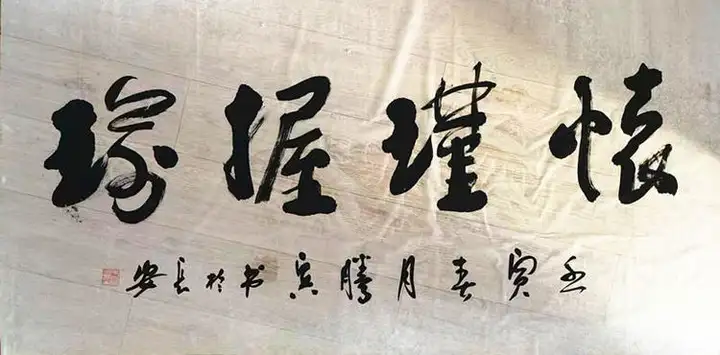 懷瑾握瑜
壬寅春月腾宾书於长安